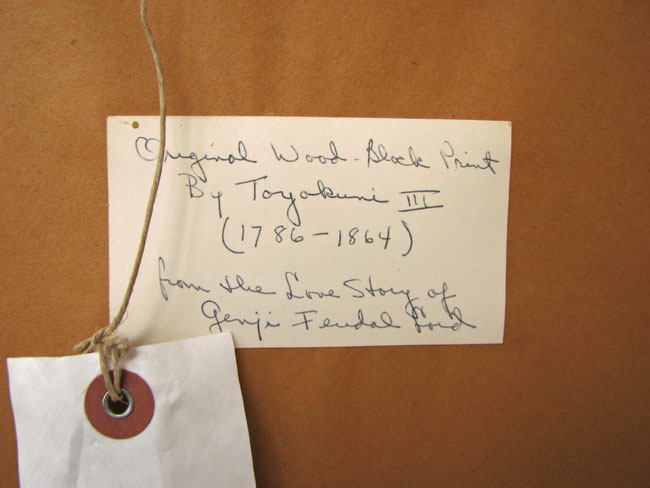 Original Wood-Block Print
By Toyokuni III
(1786-1864)
from the Love Story of
Genji Feudal Lord